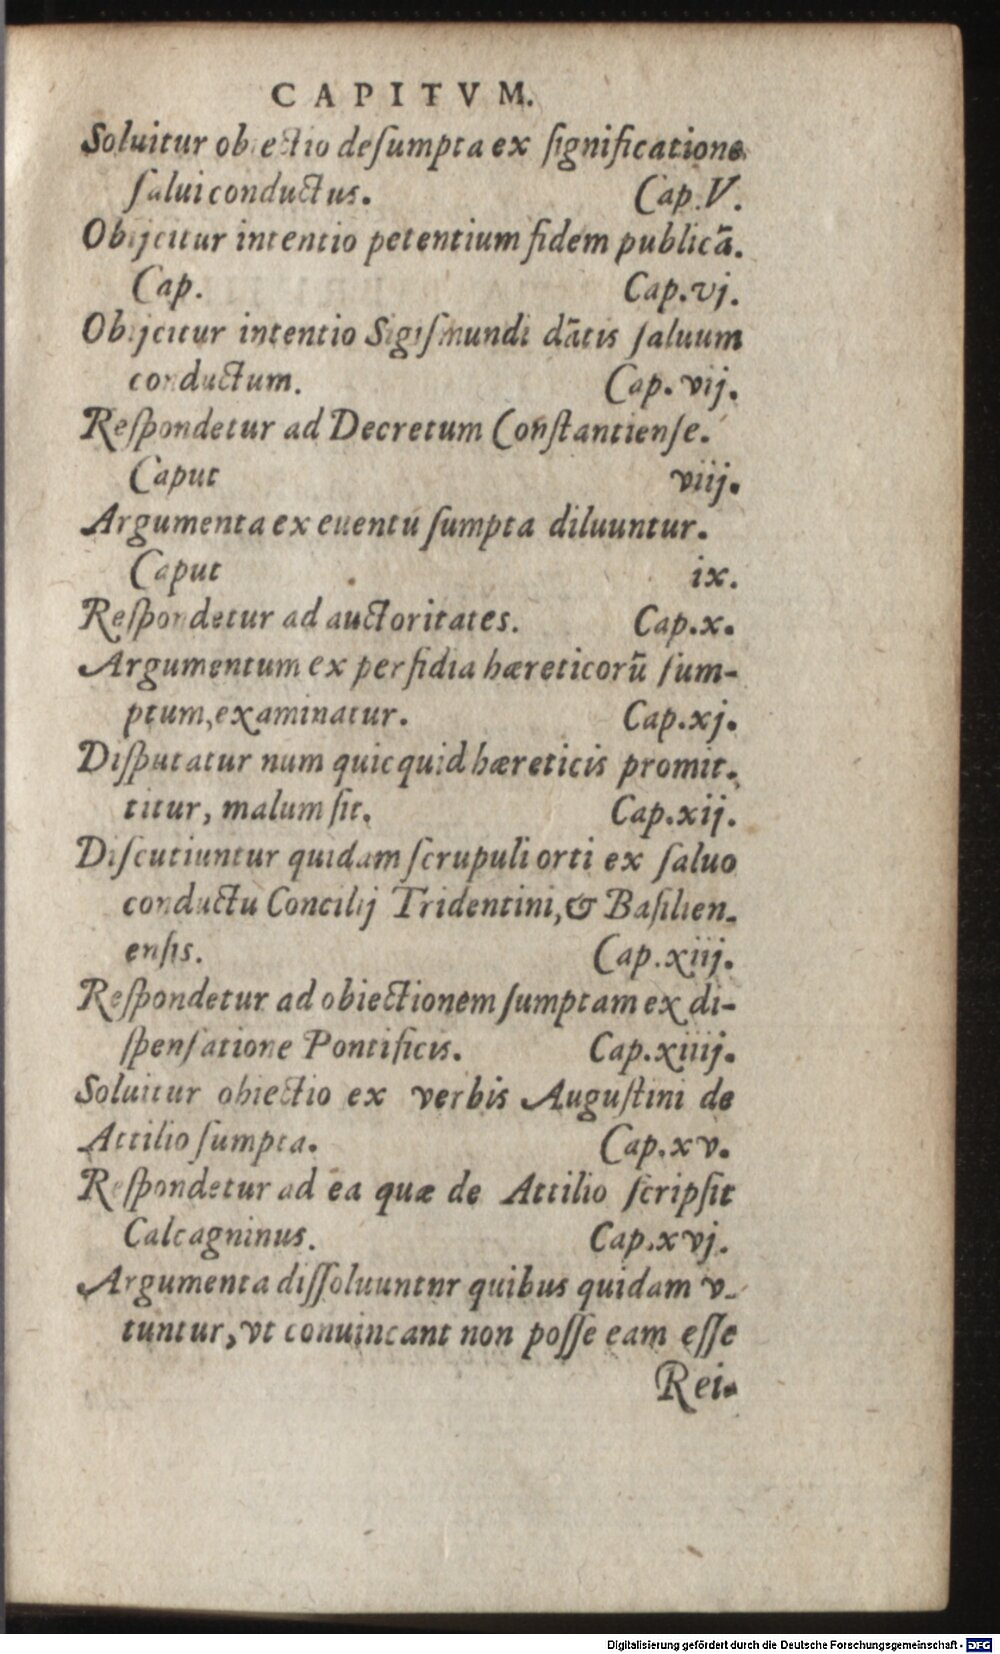 CAPITVM.
Soluitur obiectio desumpta ex significatione
salui conductus. Cap. V.
Obijcitur intentio petentium fidem publicā.
Cap. Cap. vj.
Obijcitur intentio Sigismundi dātis saluum
conductum. Cap. vij.
Respondetur ad Decretum Constantiense.
Caput viij.
Argumenta ex euentu sumpta diluuntur.
Caput ix.
Respondetur ad auctoritates. Cap. x.
Argumentum ex perfidia hæreticorū sum-
ptum, examinatur. Cap. xj.
Disputatur num quicquid hæreticis promit-
titur, malum sit. Cap. xij.
Discutiuntur quidam scrupuli orti ex saluo
conductu Concilij Tridentini, & Basilien-
ensis. Cap. xiij.
Respondetur ad obiectionem sumptam ex di-
spensatione Pontificis. Cap. xiiij.
Soluitur obiectio ex verbis Augustini de
Attilio sumpta. Cap. xv.
Respondetur ad ea quæ de Attilio scripsit
Calcagninus. Cap. xvj.
Argumenta dissoluuntnr quibus quidam v-
tuntur, vt conuincant non posse eam esse
Rei-
Digitalisierung gefördert durch die Deutsche Forschungsgemeinschaft - DFG